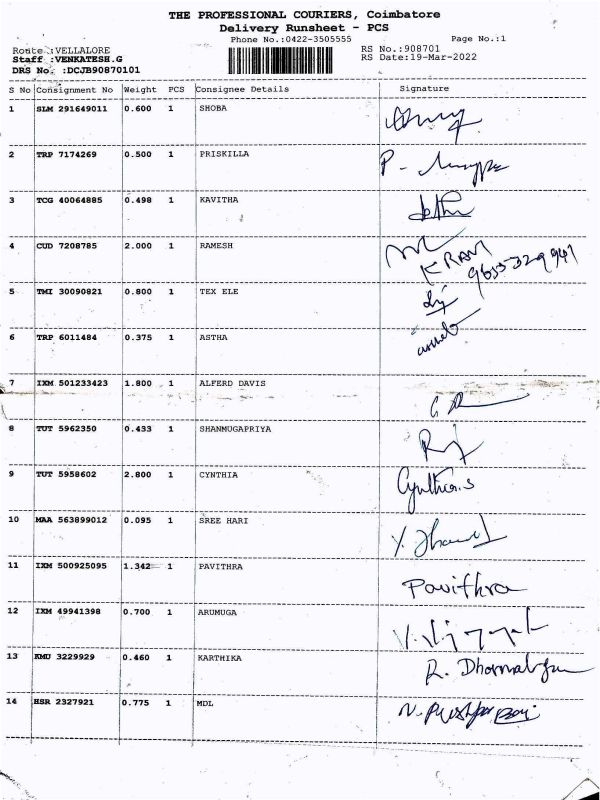 THE PROFESSIONAL COURIERS, Coimbatore
Delivery Runsheet - PCS
Phone No.:0422-3505555 Page No.:1
Route :VELLALORE RS No.:908701
Staff :VENKATESH.G RS Date:19-Mar-2022
DRS No. :DCJB90870101
S No Consignment No Weight PCS Consignee Details Signature
1 SLM 291649011 0.600 1 SHOBA
2 TRP 7174269 0.500 1 PRISKILLA
3 TCG 40064885 0.498 1 KAVITHA
4 CUD 7208785 2.000 1 RAMESH
KRAM 9655329941
5 TMI 30090821 0.800 1 TEX ELE
6 TRP 6011484 0.375 1 ASTHA
7 IXM 501233423 1.800 1 ALFERD DAVIS
8 TUT 5962350 0.433 1 SHANMUGAPRIYA
9 TUT 5958602 2.800 1 CYNTHIA Cynthia.S
10 MAA 563899012 0.095 1 SREE HARI
11 IXM 500925095 1.342 1 PAVITHRA Pavithra
12 IXM 49941398 0.700 1 ARUMUGA
13 KMU 3229929 0.460 1 KARTHIKA
14 HSR 2327921 0.775 1 MDL